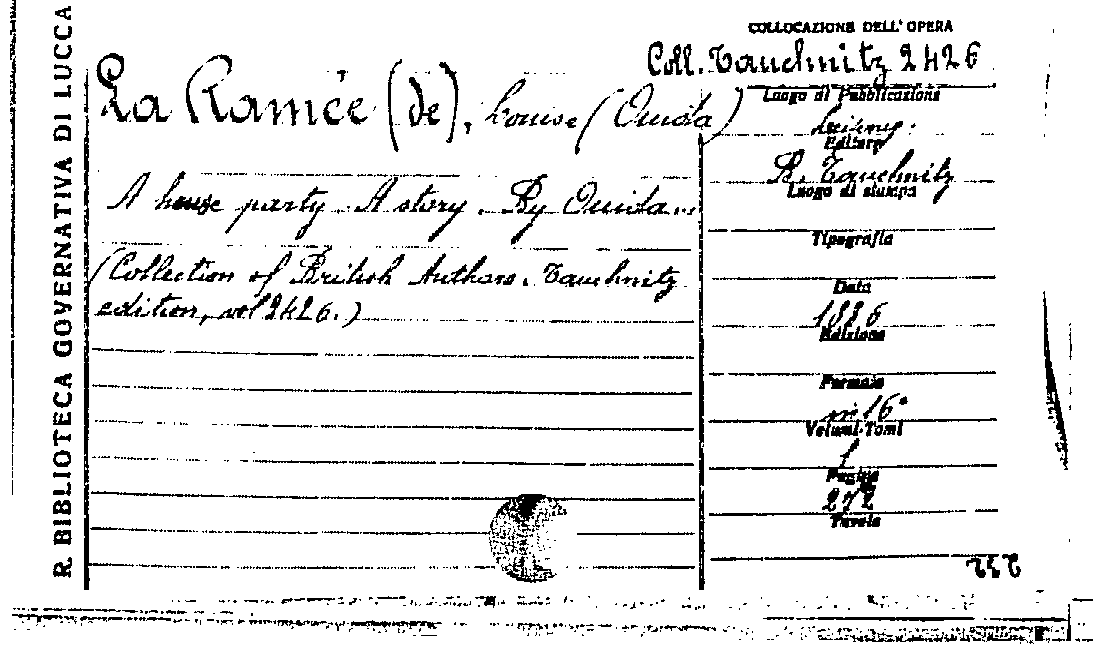 R. BIBLIOTECA GOVERNATIVA DI LUCCA
COLLOCAZIONE DELL'OPERA
Coll. Tauchnitz 2426
La Ramée (de), Louise (Ouida)
A house party. A story. By Ouida...
(Collection of British Authors. Tauchnitz
edition, vol 2426.)
Luogo di Pubblicazione
Leipzig.
Editore
B. Tauchnitz
Luogo di stampa
Tipografia
Data
1886
Edizione
Formato
in 16°
Volumi-Tomi
1
Pagine
272
Tavole